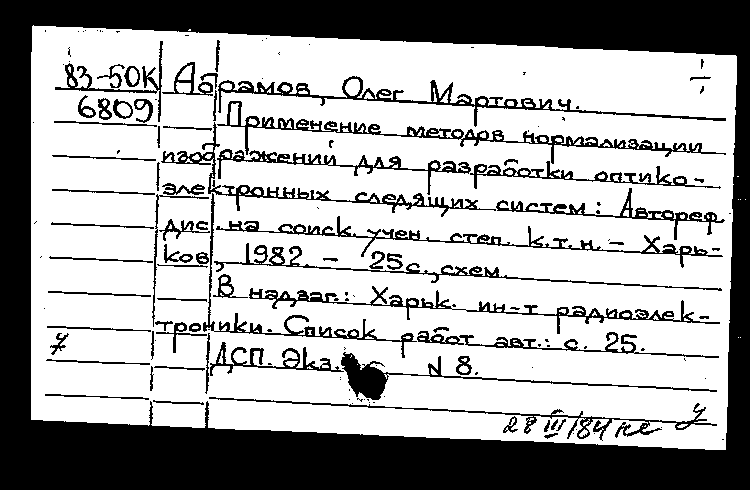 83-50К Абрамов, Олег Мартович.
6809 Применение методов нормализации
изображений для разработки оптико-
электронных следящих систем: Автореф.
дис. на соиск. учен. степ. к.т.н. - Харь-
ков, 1982. - 25с., схем.
В надзаг.: Харьк. ин-т радиоэлек-
троники. Список работ авт.: с. 25.
ДСП. Экз. N 8.
28 III/84